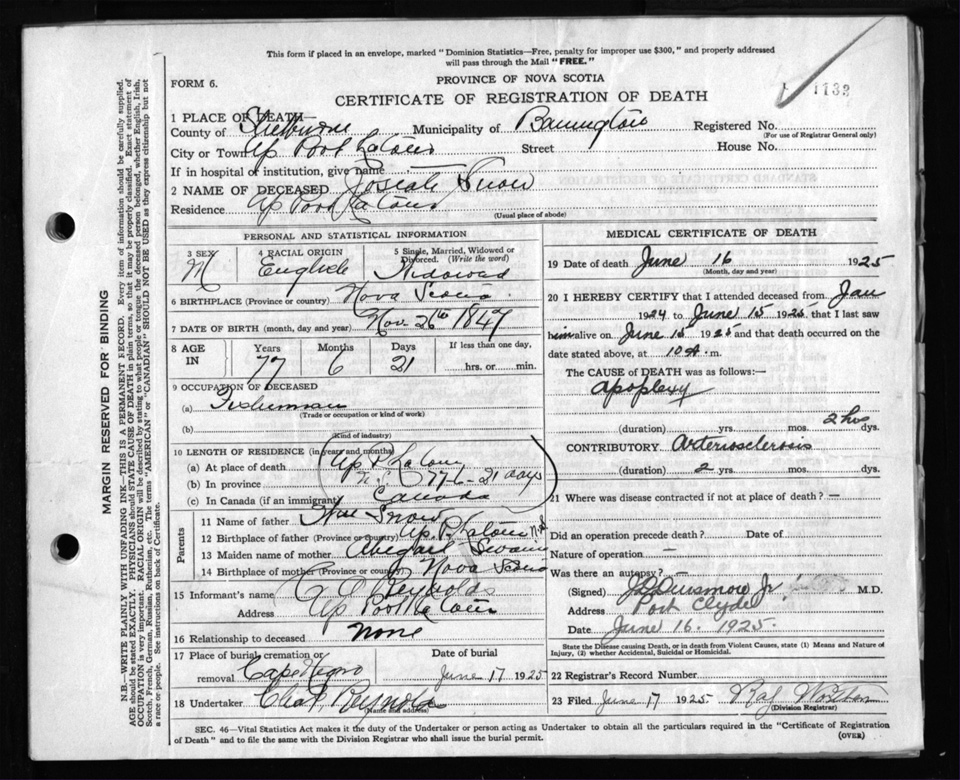 This form if placed in an envelope, marked "Dominion Statistics—Free, penalty for improper use $300," and properly addressed
will pass through the Mail "FREE."
FORM 6.
PROVINCE OF NOVA SCOTIA
1133
CERTIFICATE OF REGISTRATION OF DEATH
1 PLACE OF DEATH—
County of Shelburne Municipality of Barrington Registered No.
(For use of Registrar General only)
City or Town Up Port Latour Street House No.
If in hospital of institution, give name
2 NAME OF DECEASED Josiah Snow
Residence Up Port Latour
(Usual place of abode)
PERSONAL AND STATISTICAL INFORMATION
3 SEX M
4 RACIAL ORIGIN English
5 Single, Married, Widowed or Divorced. (Write the word) Widowed
6 BIRTHPLACE (Province or country) Nova Scotia
7 DATE OF BIRTH (month, day and year) Nov. 26th 1847
8 AGE IN Years 77 Months 6 Days 21 If less than one day, hrs. or min.
9 OCCUPATION OF DECEASED
(a) Fisherman
(Trade or occupation or kind of work)
(b)
(Kind of industry)
10 LENGTH OF RESIDENCE (in years and months)
(a) At place of death Up P. Latour
(b) In province N.S. 77-6-21 days
(c) In Canada (if an immigrant) Canada
Parents
11 Name of father Snow
12 Birthplace of father (Province or country) Up P. Latour N.S
13 Maiden name of mother Abigail
14 Birthplace of mother (Province or country) Nova Scotia
15 Informant's name Reynolds
Address Up Port Latour
16 Relationship to deceased None
17 Place of burial, cremation or removal Cape Negro
Date of burial June 17 1925
18 Undertaker Chas Reynolds
(Name and address)
MEDICAL CERTIFICATE OF DEATH
19 Date of death June 16 1925
(Month, day and year)
20 I HEREBY CERTIFY that I attended deceased from Jan
1924 to June 15 1925 that I last saw
him alive on June 15 1925 and that death occurred on the
date stated above, at 10 a. m.
The CAUSE of DEATH was as follows:—
Apoplexy
(duration) yrs. mos. 2 hrs dys.
CONTRIBUTORY Arteriosclerosis
(duration) 2 yrs. mos. dys.
21 Where was disease contracted if not at place of death? —
Did an operation precede death? Date of
Nature of operation —
Was there an autopsy? —
(Signed) Jr. M.D.
Address Port Clyde
Date June 16. 1925.
State the Disease causing Death, or in death from Violent Causes, state (1) Means and Nature of
Injury, (2) whether Accidental, Suicidal or Homicidal.
22 Registrar's Record Number
23 Filed June 17 1925
(Division Registrar)
SEC. 46—Vital Statistics Act makes it the duty of the Undertaker or person acting as Undertaker to obtain all the particulars required in the "Certificate of Registration
of Death" and to file the same with the Division Registrar who shall issue the burial permit.
(OVER)
MARGIN RESERVED FOR BINDING
N.B.—WRITE PLAINLY WITH UNFADING INK—THIS IS A PERMANENT RECORD. Every item of information should be carefully supplied.
AGE should be stated EXACTLY. PHYSICIANS should STATE CAUSE OF DEATH in plain terms, so that it may be properly classified. Exact statement of
OCCUPATION is very important. RACIAL ORIGIN will be described by stating to what people or tongue the deceased person belonged, whether English, Irish,
Scotch, French, German, Russian, Ruthenian, etc. The terms "AMERICAN" or "CANADIAN" SHOULD NOT BE USED as they express citizenship but not
a race or people. See instructions on back of Certificate.